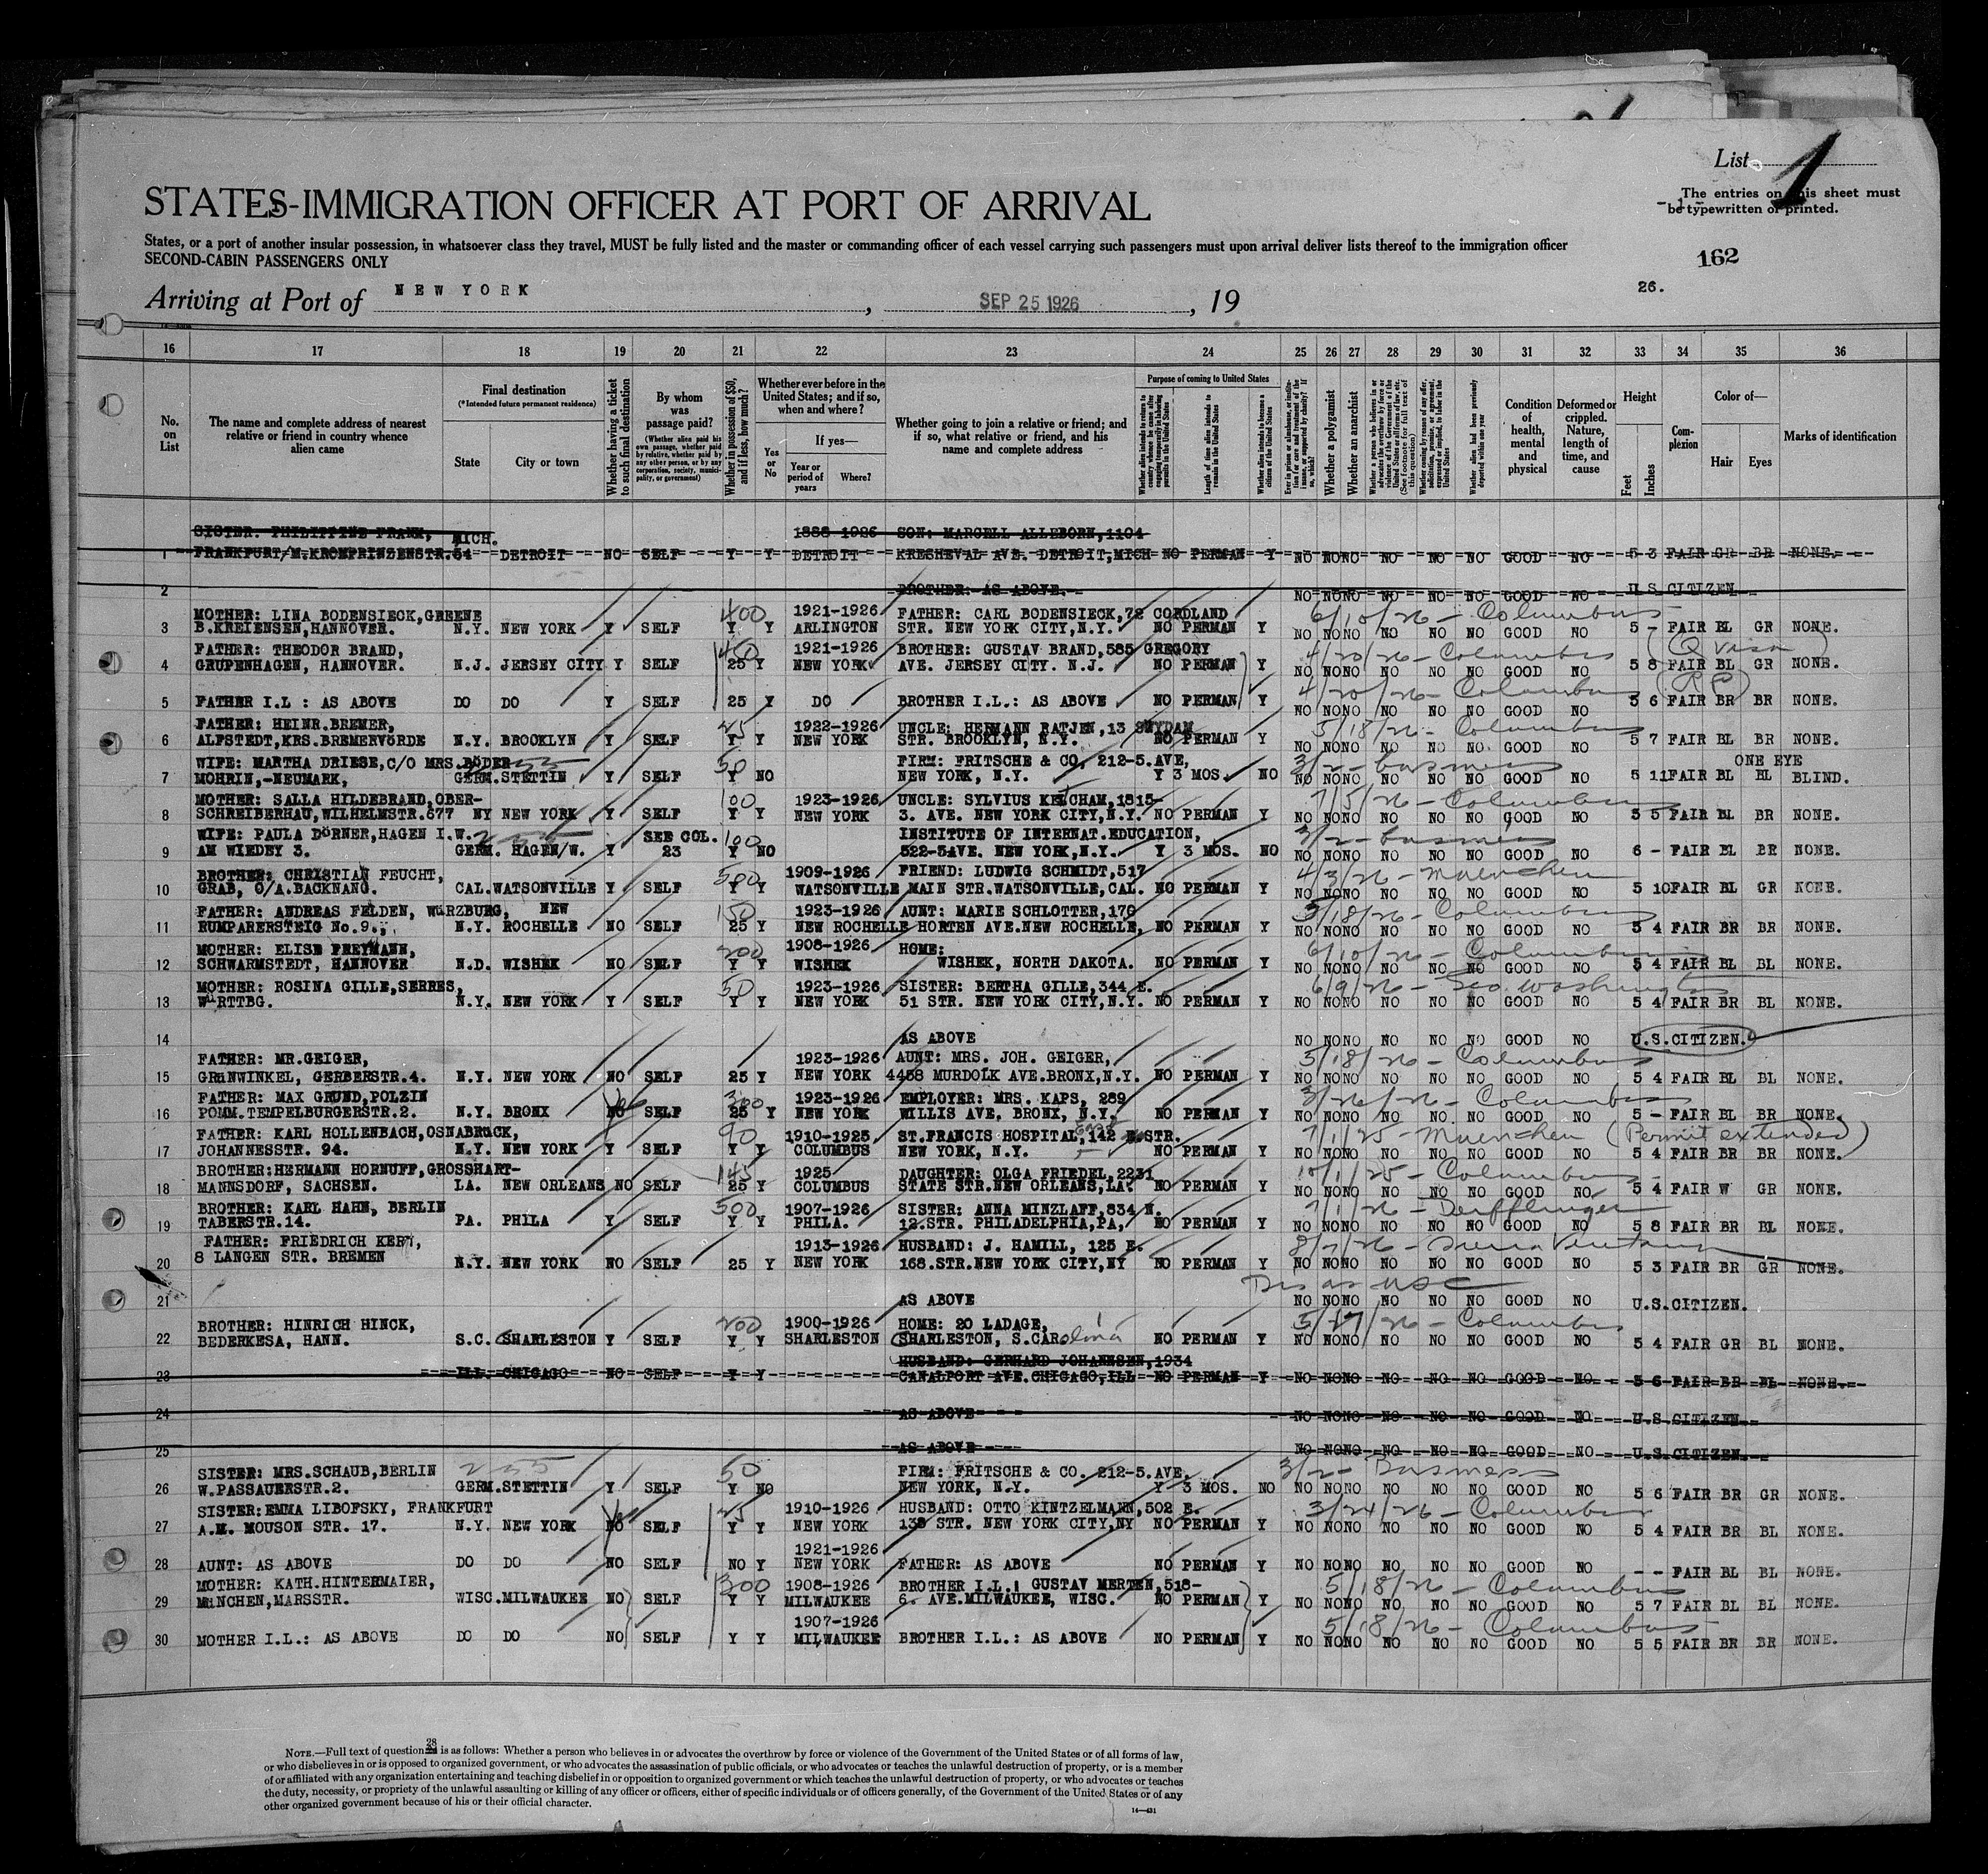 List 1
The entries on this sheet must
be typewritten or printed.
- 1 -
STATES-IMMIGRATION OFFICER AT PORT OF ARRIVAL
States, or a port of another insular possession, in whatsoever class they travel, MUST be fully listed and the master or commanding officer of each vessel carrying such passengers must upon arrival deliver lists thereof to the immigration officer
SECOND-CABIN PASSENGERS ONLY
162
26.
Arriving at Port of NEW YORK, SEP 25 1926, 19
16 17 18 19 20 21 22 23 24 25 26 27 28 29 30 31 32 33 34 35 36
No. on List
The name and complete address of nearest relative or friend in country whence alien came
Final destination
(*Intended future permanent residence)
State
City or town
Whether having a ticket to such final destination
By whom was passage paid?
(Whether alien paid his own passage, whether paid by relative, whether paid by any other person, or by any corporation, society, municipality, or government)
Whether in possession of $50, and if less, how much?
Whether ever before in the United States; and if so, when and where?
Yes or No
If yes—
Year or period of years
Where?
Whether going to join a relative or friend; and if so, what relative or friend, and his name and complete address
Purpose of coming to United States
Whether alien intends to return to country whence he came after engaging temporarily in laboring pursuits in the United States
Length of time alien intends to remain in the United States
Whether alien intends to become a citizen of the United States
Ever in prison or almshouse, or institution for care and treatment of the insane, or supported by charity? If so, which?
Whether a polygamist
Whether an anarchist
Whether a person who believes in or advocates the overthrow by force or violence of the Government of the United States or all forms of law, etc. (See footnote for full text of this question)
Whether coming by reason of any offer, solicitation, promise, or agreement, expressed or implied, to labor in the United States
Whether alien had been previously deported within one year
Condition of health, mental and physical
Deformed or crippled. Nature, length of time, and cause
Height
Feet
Inches
Complexion
Color of—
Hair
Eyes
Marks of identification
SISTER: PHILIPPINE FRANK, MICH. 1886-1926 SON: MARCELL ALLEBORN, 1104
1 FRANKFURT/M. KRONPRINZENSTR. 54 DETROIT NO SELF Y Y DETROIT KRESHEVAL AVE. DETROIT, MICH NO PERMAN Y NO NO NO NO NO NO GOOD NO 5 3 FAIR GR BR NONE.
2 BROTHER: AS ABOVE. NO NO NO NO NO NO GOOD NO U.S.CITIZEN
MOTHER: LINA BODENSIECK, GREENE 400 1921-1926 FATHER: CARL BODENSIECK, 72 CORDLAND 6/10/26 - Columbus
3 B.KREIENSEN, HANNOVER. N.Y. NEW YORK Y SELF Y Y ARLINGTON STR. NEW YORK CITY, N.Y. NO PERMAN Y NO NO NO NO NO NO GOOD NO 5 - FAIR BL GR NONE.
FATHER: THEODOR BRAND, 1921-1926 BROTHER: GUSTAV BRAND, 585 GREGORY 4/20/26 - Columbus (Q visa)
4 GRUPENHAGEN, HANNOVER. N.J. JERSEY CITY Y SELF 25 Y NEW YORK AVE. JERSEY CITY. N.J. NO PERMAN Y NO NO NO NO NO NO GOOD NO 5 8 FAIR BL GR NONE.
4/20/26 - Columbus (RP)
5 FATHER I.L : AS ABOVE DO DO Y SELF 25 Y DO BROTHER I.L.: AS ABOVE NO PERMAN Y NO NO NO NO NO NO GOOD NO 5 6 FAIR BR BR NONE.
FATHER: HEINR.BREMER, 25 1922-1926 UNCLE: HERMANN RATJEN, 13 SUYDAM 5/18/26 - Columbus
6 ALFSTEDT, KRS.BREMERVÖRDE N.Y. BROOKLYN Y SELF Y Y NEW YORK STR. BROOKLYN, N.Y. NO PERMAN Y NO NO NO NO NO NO GOOD NO 5 7 FAIR BL BR NONE.
WIFE: MARTHA DRIESE, C/O MRS.BÖDER 50 FIRM: FRITSCHE & CO. 212-5.AVE, 3/2 - business ONE EYE
7 MOHRIN,-NEUMARK, GERM.STETTIN Y SELF Y NO NEW YORK, N.Y. Y 3 MOS. NO NO NO NO NO NO NO GOOD NO 5 11 FAIR BL BL BLIND.
MOTHER: SALLA HILDEBRAND, OBER- 100 1923-1926 UNCLE: SYLVIUS KETCHAM, 1815- 7/5/26 - Columbus
8 SCHREIBERHAU, WILHELMSTR.677 NY NEW YORK Y SELF Y Y NEW YORK 3. AVE. NEW YORK CITY, N.Y. NO PERMAN Y NO NO NO NO NO NO GOOD NO 5 5 FAIR BL BR NONE.
WIFE: PAULA DÖRNER, HAGEN I.W. 255 SEE COL. 100 INSTITUTE OF INTERNAT.EDUCATION, 3/2 - business
9 AM WIEDEY 3. GERM. HAGEN/W. Y 23 Y NO 522-5AVE. NEW YORK, N.Y. Y 3 MOS. NO NO NO NO NO NO NO GOOD NO 6 - FAIR BL BR NONE.
BROTHER: CHRISTIAN FEUCHT, 500 1909-1926 FRIEND: LUDWIG SCHMIDT, 517 4/3/26 - Muenchen
10 GRAB, O/A.BACKNANG. CAL. WATSONVILLE Y SELF Y Y WATSONVILLE MAIN STR.WATSONVILLE, CAL. NO PERMAN Y NO NO NO NO NO NO GOOD NO 5 10 FAIR BL GR NONE.
FATHER: ANDREAS FELDEN, WÜRZBURG, NEW 150 1923-1926 AUNT: MARIE SCHLOTTER, 170 5/18/26 - Columbus
11 RUMPARERSTEIG No.9. N.Y. ROCHELLE NO SELF 25 Y NEW ROCHELLE HORTEN AVE.NEW ROCHELLE, NO PERMAN Y NO NO NO NO NO NO GOOD NO 5 4 FAIR BR BR NONE.
MOTHER: ELISE FREYMANN, 200 1908-1926 HOME: 6/10/26 - Columbus
12 SCHWARMSTEDT, HANNOVER N.D. WISHEK NO SELF Y Y WISHEK WISHEK, NORTH DAKOTA. NO PERMAN Y NO NO NO NO NO NO GOOD NO 5 4 FAIR BL BL NONE.
MOTHER: ROSINA GILLE, SERRES, 50 1923-1926 SISTER: BERTHA GILLE, 344 E. 6/9/26 - Geo. Washington
13 WÜRTTBG. N.Y. NEW YORK Y SELF Y Y NEW YORK 51 STR. NEW YORK CITY, N.Y. NO PERMAN Y NO NO NO NO NO NO GOOD NO 5 4 FAIR BR BL NONE.
14 AS ABOVE NO NO NO NO NO NO GOOD NO U.S.CITIZEN.
FATHER: MR.GEIGER, 1923-1926 AUNT: MRS. JOH. GEIGER, 5/18/26 - Columbus
15 GRÜNWINKEL, GERBERSTR.4. N.Y. NEW YORK NO SELF 25 Y NEW YORK 4458 MURDOLK AVE.BRONX, N.Y. NO PERMAN Y NO NO NO NO NO NO GOOD NO 5 4 FAIR BL BL NONE.
FATHER: MAX GRUND, POLZIN Yes 300 1923-1926 EMPLOYER: MRS. KAPS, 289 3/26/26 - Columbus
16 POMM.TEMPELBURGERSTR.2. N.Y. BRONX NO SELF 25 Y NEW YORK WILLIS AVE, BRONX, N.Y. NO PERMAN Y NO NO NO NO NO NO GOOD NO 5 - FAIR BL BR NONE.
FATHER: KARL HOLLENBACH, OSNABRÜCK, 90 1910-1925 ST.FRANCIS HOSPITAL, 142 East STR. 7/1/25 - Muenchen (Permit extended)
17 JOHANNESSTR. 94. N.Y. NEW YORK Y SELF Y Y COLUMBUS NEW YORK, N.Y. NO PERMAN Y NO NO NO NO NO NO GOOD NO 5 4 FAIR BR BR NONE.
BROTHER: HERMANN HORNUFF, GROSSHART- 145 1925 DAUGHTER: OLGA FRIEDEL, 2231 10/1/25 - Columbus
18 MANNSDORF, SACHSEN. LA. NEW ORLEANS NO SELF 25 Y COLUMBUS STATE STR.NEW ORLEANS, LA. NO PERMAN Y NO NO NO NO NO NO GOOD NO 5 4 FAIR W GR NONE.
BROTHER: KARL HAHN, BERLIN 500 1907-1926 SISTER: ANNA MINZLAFF, 834 N. 7/1/26 - Derfflinger
19 TABERSTR.14. PA. PHILA Y SELF Y Y PHILA. 12.STR. PHILADELPHIA, PA, NO PERMAN Y NO NO NO NO NO NO GOOD NO 5 8 FAIR BR BL NONE.
FATHER: FRIEDRICH 1913-1926 HUSBAND: J. HAMILL, 125 E. 8/7/26 - Sierra Ventana
20 8 LANGEN STR. BREMEN N.Y. NEW YORK NO SELF 25 Y NEW YORK 168.STR.NEW YORK CITY, NY NO PERMAN Y NO NO NO NO NO NO GOOD NO 5 3 FAIR BR GR NONE.
Dis as USC
21 AS ABOVE NO NO NO NO NO NO GOOD NO U.S.CITIZEN.
BROTHER: HINRICH HINCK, 200 1900-1926 HOME: 20 LADAGE, 5/27/26 - Columbus
22 BEDERKESA, HANN. S.C. SHARLESTON Y SELF Y Y SHARLESTON CHARLESTON, S.CAROlina NO PERMAN Y NO NO NO NO NO NO GOOD NO 5 4 FAIR GR BL NONE.
HUSBAND: GERHARD JOHANNSEN, 1934
23 ILL. CHICAGO NO SELF Y Y CANALPORT AVE.CHICAGO, ILL NO PERMAN Y NO NO NO NO NO NO GOOD NO 5 6 FAIR BR BL NONE.
24 AS ABOVE NO NO NO NO NO NO GOOD NO U.S.CITIZEN.
25 AS ABOVE NO NO NO NO NO NO GOOD NO U.S.CITIZEN.
SISTER: MRS.SCHAUB, BERLIN 255 50 FIRM: FRITSCHE & CO. 212-5.AVE, 3/2 - Business
26 W.PASSAUERSTR.2. GERM.STETTIN Y SELF Y NO NEW YORK, N.Y. Y 3 MOS. NO NO NO NO NO NO NO GOOD NO 5 6 FAIR BR GR NONE.
SISTER: EMMA LIBOFSKY, FRANKFURT Yes 25 1910-1926 HUSBAND: OTTO KINTZELMANN, 502 E. 3/24/26 - Columbus
27 A.M. MOUSON STR. 17. N.Y. NEW YORK NO SELF Y Y NEW YORK 138 STR. NEW YORK CITY, NY NO PERMAN Y NO NO NO NO NO NO GOOD NO 5 4 FAIR BR BL NONE.
1921-1926
28 AUNT: AS ABOVE DO DO NO SELF NO Y NEW YORK FATHER: AS ABOVE NO PERMAN Y NO NO NO NO NO NO GOOD NO -- FAIR BL BL NONE.
MOTHER: KATH.HINTERMAIER, 300 1908-1926 BROTHER I.L.: GUSTAV MERTEN, 518- 5/18/26 - Columbus
29 MÜNCHEN, MARSSTR. WISC.MILWAUKEE NO SELF Y Y MILWAUKEE 6. AVE.MILWAUKEE, WISC. NO PERMAN Y NO NO NO NO NO NO GOOD NO 5 7 FAIR BL BL NONE.
1907-1926 5/18/26 - Columbus
30 MOTHER I.L.: AS ABOVE DO DO NO SELF Y Y MILWAUKEE BROTHER I.L.: AS ABOVE NO PERMAN Y NO NO NO NO NO NO GOOD NO 5 5 FAIR BR BR NONE.
NOTE.—Full text of question 28 is as follows: Whether a person who believes in or advocates the overthrow by force or violence of the Government of the United States or of all forms of law,
or who disbelieves in or is opposed to organized government, or who advocates the assassination of public officials, or who advocates or teaches the unlawful destruction of property, or is a member
of or affiliated with any organization entertaining and teaching disbelief in or opposition to organized government or which teaches the unlawful destruction of property, or who advocates or teaches
the duty, necessity, or propriety of the unlawful assaulting or killing of any officer or officers, either of specific individuals or of officers generally, of the Government of the United States or of any
other organized government because of his or their official character.
14—431